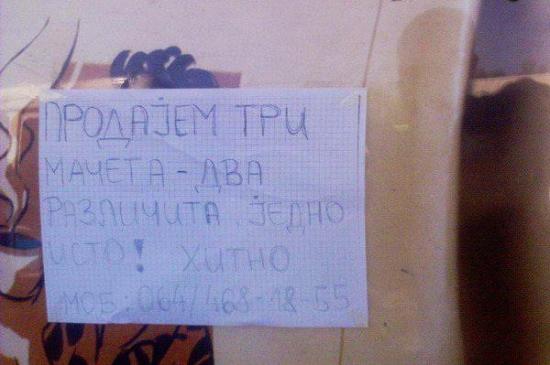 ПРОДАЈЕМ ТРИ
МАЧЕТА - ДВА
РАЗЛИЧИТА, ЈЕДНО
ИСТО! ХИТНО
МОБ: 064/468-18-55